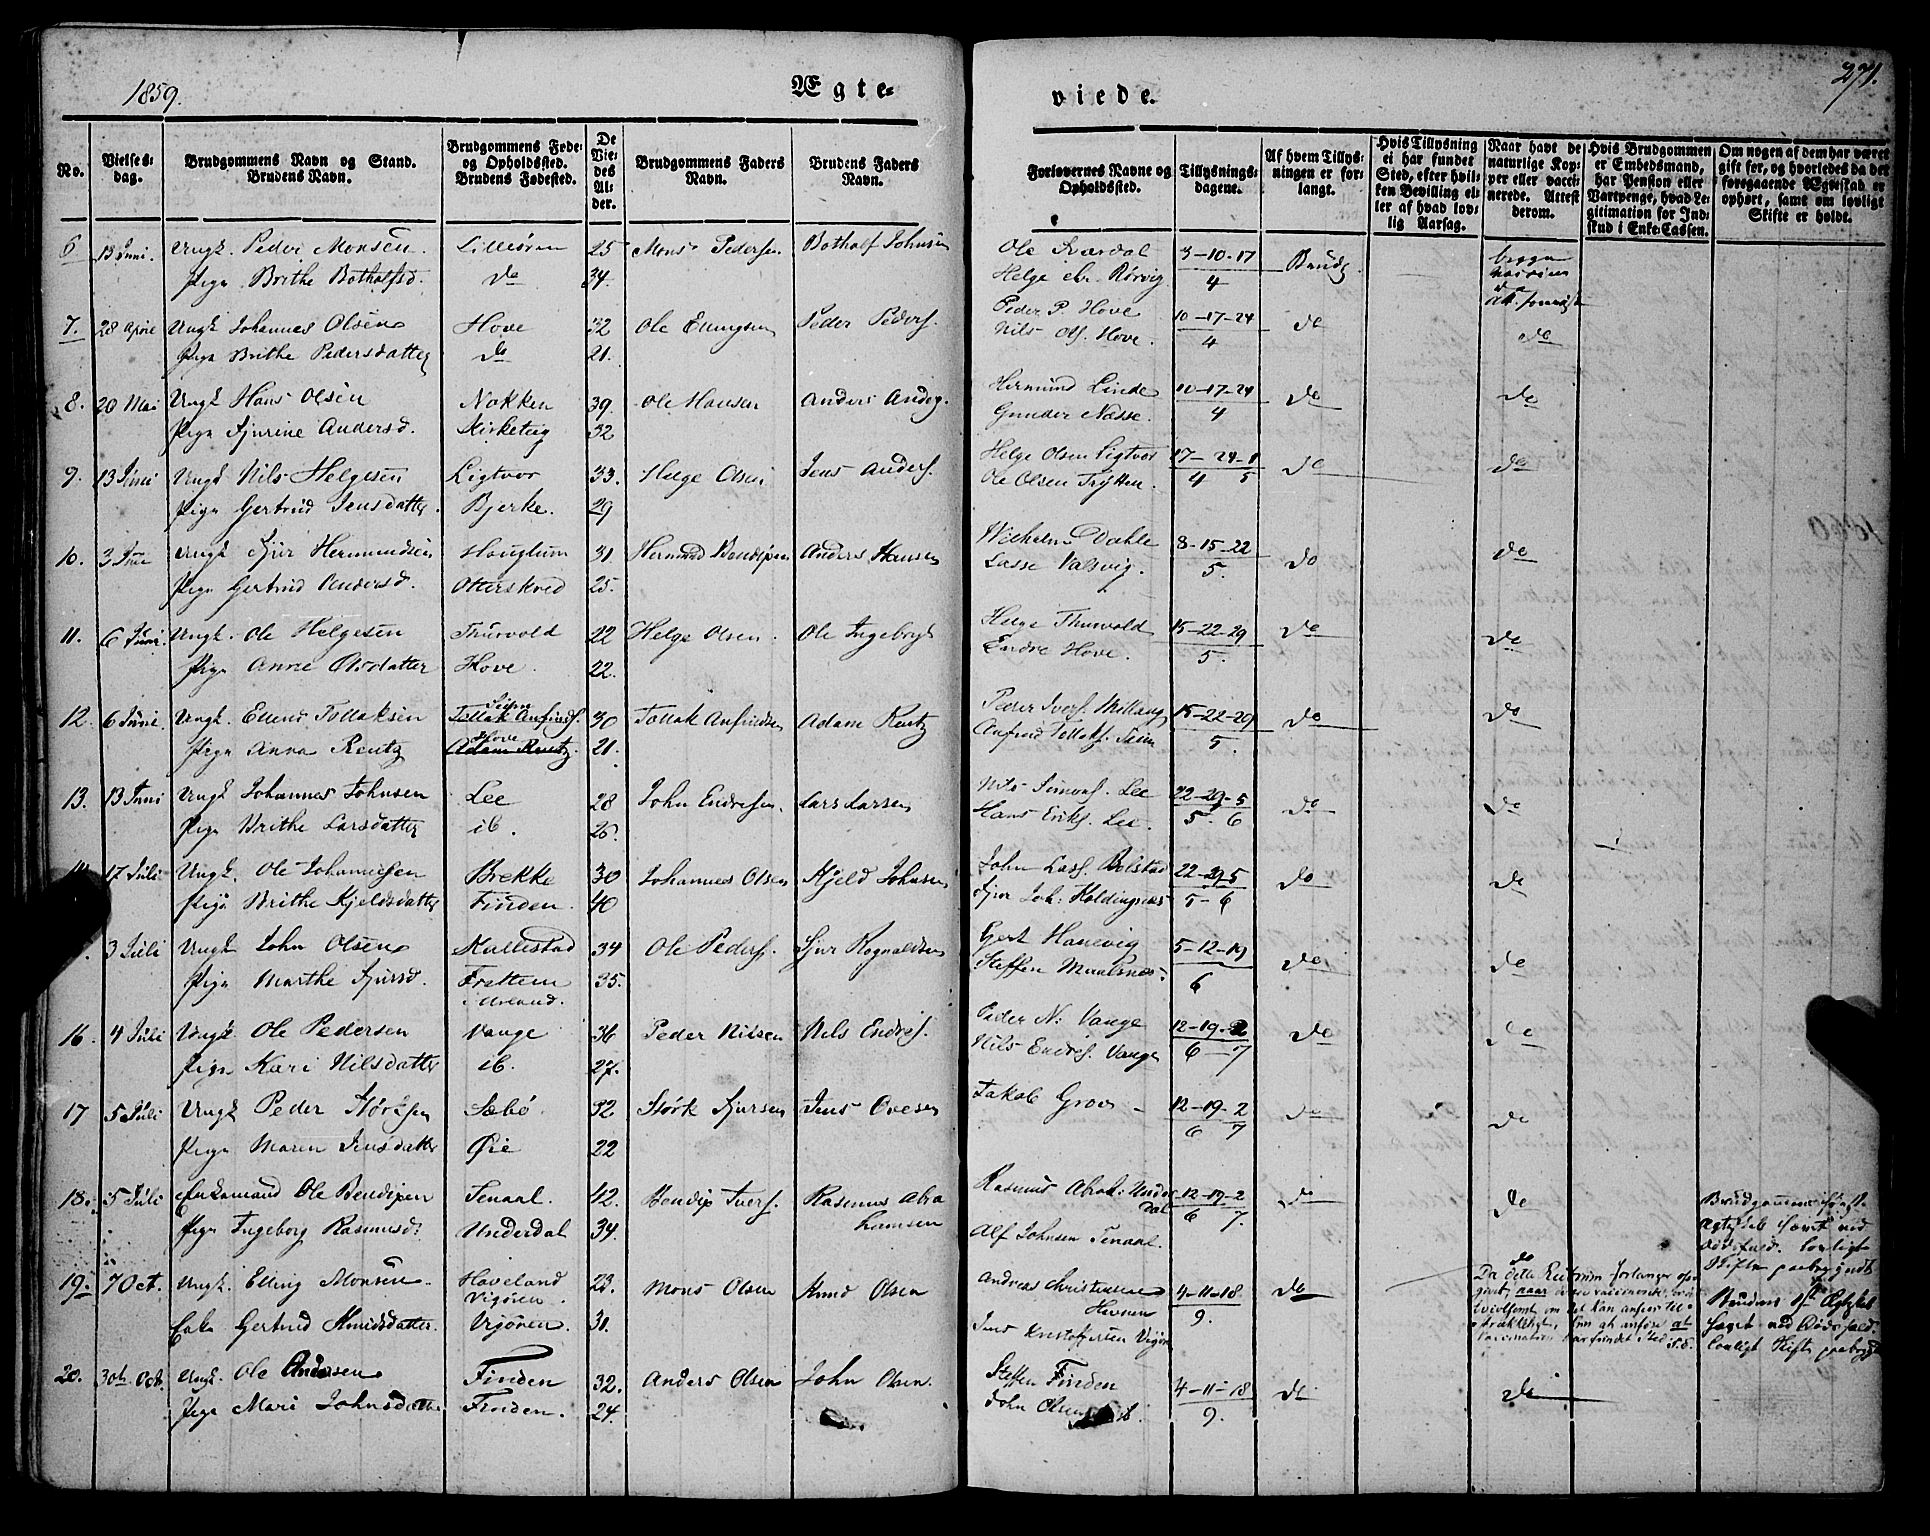 1859.
Ægte-
viede.
271.
No.
Vielses-dag.
Brudgommens Navn og Stand. Brudens Navn.
Brudgommens Føde- og Opholdssted. Brudens Fødested.
De Vie-des Al-der.
Brudgommens Faders Navn.
Brudens Faders Navn.
Forlovernes Navne og Opholdssted.
Tillysnings-dagene.
Af hvem Tillys-ningen er for-langt.
Hvis Tillysning ei har fundet Sted, efter hvil-ken Bevilling el-ler af hvad lov-lig Aarsag.
Naar havt de naturlige Kop-per eller vacci-nerede. Attest derom.
Hvis Brudgommen er Embedsmand, har Pension eller Vartpenge, hvad Le-gitimation for Ind-skud i Enke-Cassen.
Om nogen af dem har været gift før, og hvorledes da det foregaaende Ægteskab er ophørt, samt om lovligt Skifte er holdt.
6 13 Juni. Ungk. Peder Monsen Lilleøren 25 Mons Pedersen Botholf Johnsen Ole Svardal 3-10-17 Brudg. begge
Pige Brithe Botholfsd. do 34. Helge Rørvig 4
7. 28 April Ungk Johannes Olsen Hove 32 Ole Ellingsen Peder Peders. Peder P. Hove 10-17-24 do do
Pige Brithe Pedersdatter do 21. Nils Ols. Hove. 4
8. 20 Mai Ungk Hans Olsen Nokken 39. Ole Hansen Anders Hermund Linde 10-17-24 do do
Pige Sjurine Andersd. Kirketeig 32 Gunder Næsse. 4
9. 13 Juni Ungk Nils Helgesen Ligtvor 33. Helge Olsen Jens Anders. Helge Olsen Ligtvor 17-24-1 do do
Pige Gertrud Jensdatter. Bjerke. 29 Ole Olsen Trytten. 4 5
10. 3 Ungk Sjur Hermundsen Hauglum 31 Hermund Anders Hansen Wilhelm Dahle 8-15-22 do do
Pige Gertrud Andersd. Otterskred 25. Lasse Valsvig. 5.
11. 6 Juni. Ungk. Ole Helgesen Thurvold 22 Helge Olsen. Ole Ingebrigts Helge Thurvold 15-22-29 do do
Pige Anne Olsdatter Hove. 22. Endre Hove. 5.
12. 6 Juni. Ungk. Ellend Tollaksen Seim Tollak Anfinds. 30 Tollak Anfindsen Adam Rentz Peder Ivers. 15-22-29 do do
Pige Anna Rentz Hove Adam Rentz. 21. Anfind Tollaks. Seim 5.
13. 13 Juni Ungk Johannes Johnsen Lee 28 John Endresen. Lars Larsen Nils Simons. Lee 22-29-5 do do
Pige Brithe Larsdatter ib. 26. Hans Eriks. Lee. 5-6
17 Juli Ungk. Ole Johannesen Brekke 30 Johannes Olsen Kjeld Johnsen John Lass. Bolstad 22-29-5 do do
Pige Brithe Kjeldsdatter Finden. 40 Sjur Joh: Holdingnæs 5-6
3 Juli Ungk John Olsen Kallestad 34 Ole Peders. Sjur Rognaldsen Gert Hanevig 5-12-19 do do
Pige Marthe Sjursd. Frettem 35. Steffen 6
i Urland.
16. 4 Juli Ungk Ole Pedersen Vange 36 Peder Nilsen Nils Endres. Peder N: Vange 12-19-2 do do
Pige Kari Nilsdatter ib. 27. Nils Endres. Vange 6-7
17 5 Juli Ungk Peder Størksen Sæbø. 32 Størk Sjursen Jens Ovesen Jakob Grov - 12-19-2 do do
Pige Maren Jensdatter Øie 22 6 7
18. 5 Juli Enkemand Ole Bendixen Senaal. 42. Bendix Ivers. Rasmus Abra- Rasmus Abrah: Under- 12-19-2 do do Brudgommens første
Pige Ingeborg Rasmusd. Underdal 34. hamsen dal 6 7.
Alf Johnsen Senaal.
Ægtesk. hævet ved Dødsfald. Lovligt Skifte paabegyndt
19. 7 Oct. Ungk. Elling Monsen Haveland 23. Mons Olsen Knud Olsen Andreas Christensen 4-11-18 do do
Vigøren. Havnen 9.
Enke Gertrud Knudsdatter. Vigøren. 31. Jens Kristofersen Vigøren
Da dette Rubrum forlanger opgivet, naar de ere vaccinerede,
Brudens 1st Ægtesk. hævet ved Dødsfald. Lovligt Skifte
20. 30te Oct. Ungk. Ole Andersen Finden 32. Anders Olsen John Olsen. Steffen Finden 4-11-18 do do
Pige Mari Johnsdatter Finden. 24. John Olsen ib. 9.